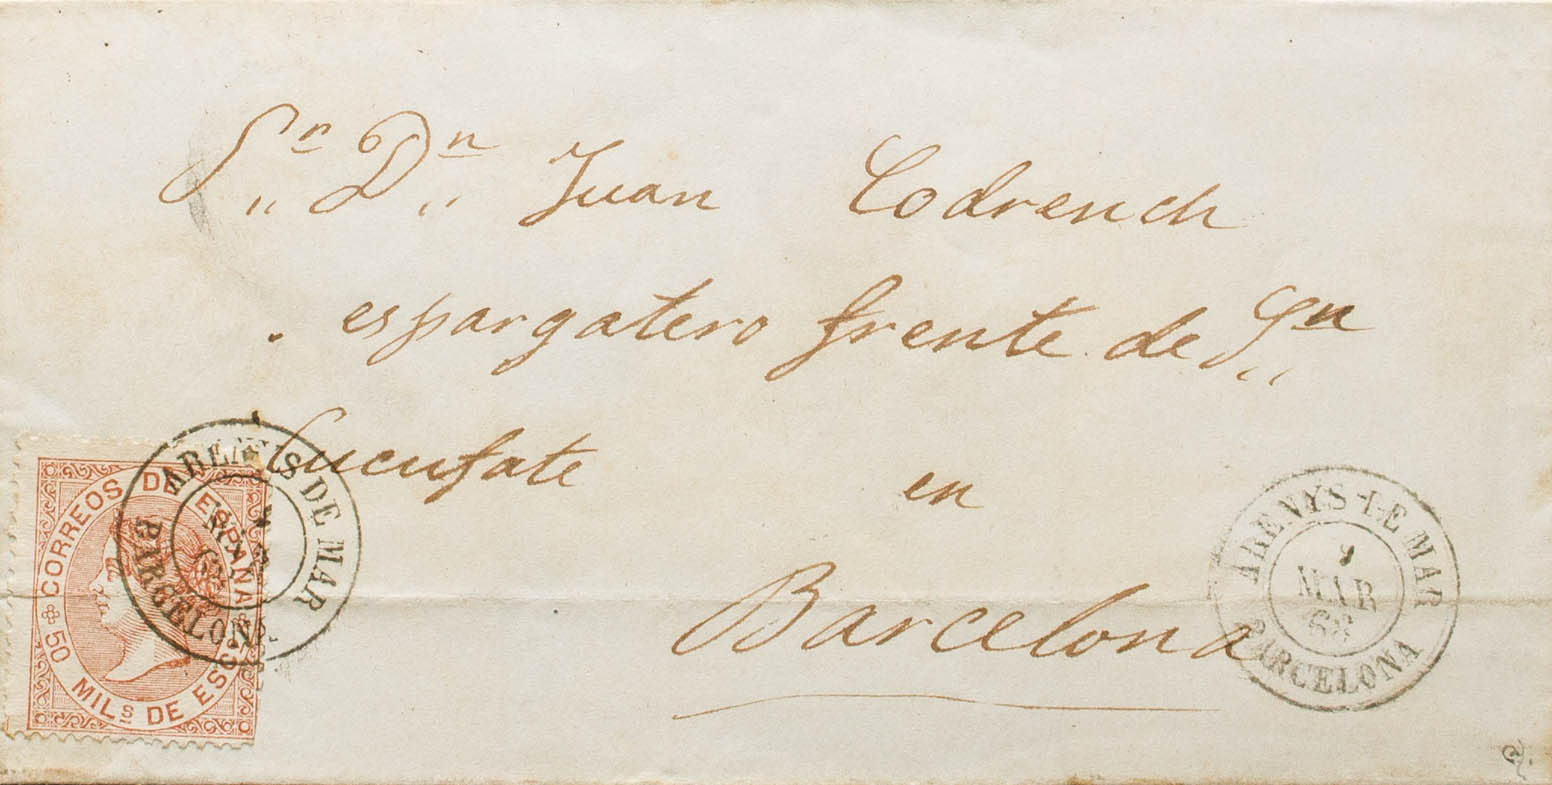 Sr Dn Juan Codrench
espargatero frente de Sn
Cucufate en
Barcelona
CORREOS DE ESPAÑA
50 MILS DE ES
ARENYS DE MAR
MAR
68
BARCELONA
ARENYS DE MAR
9
MAR
68
BARCELONA